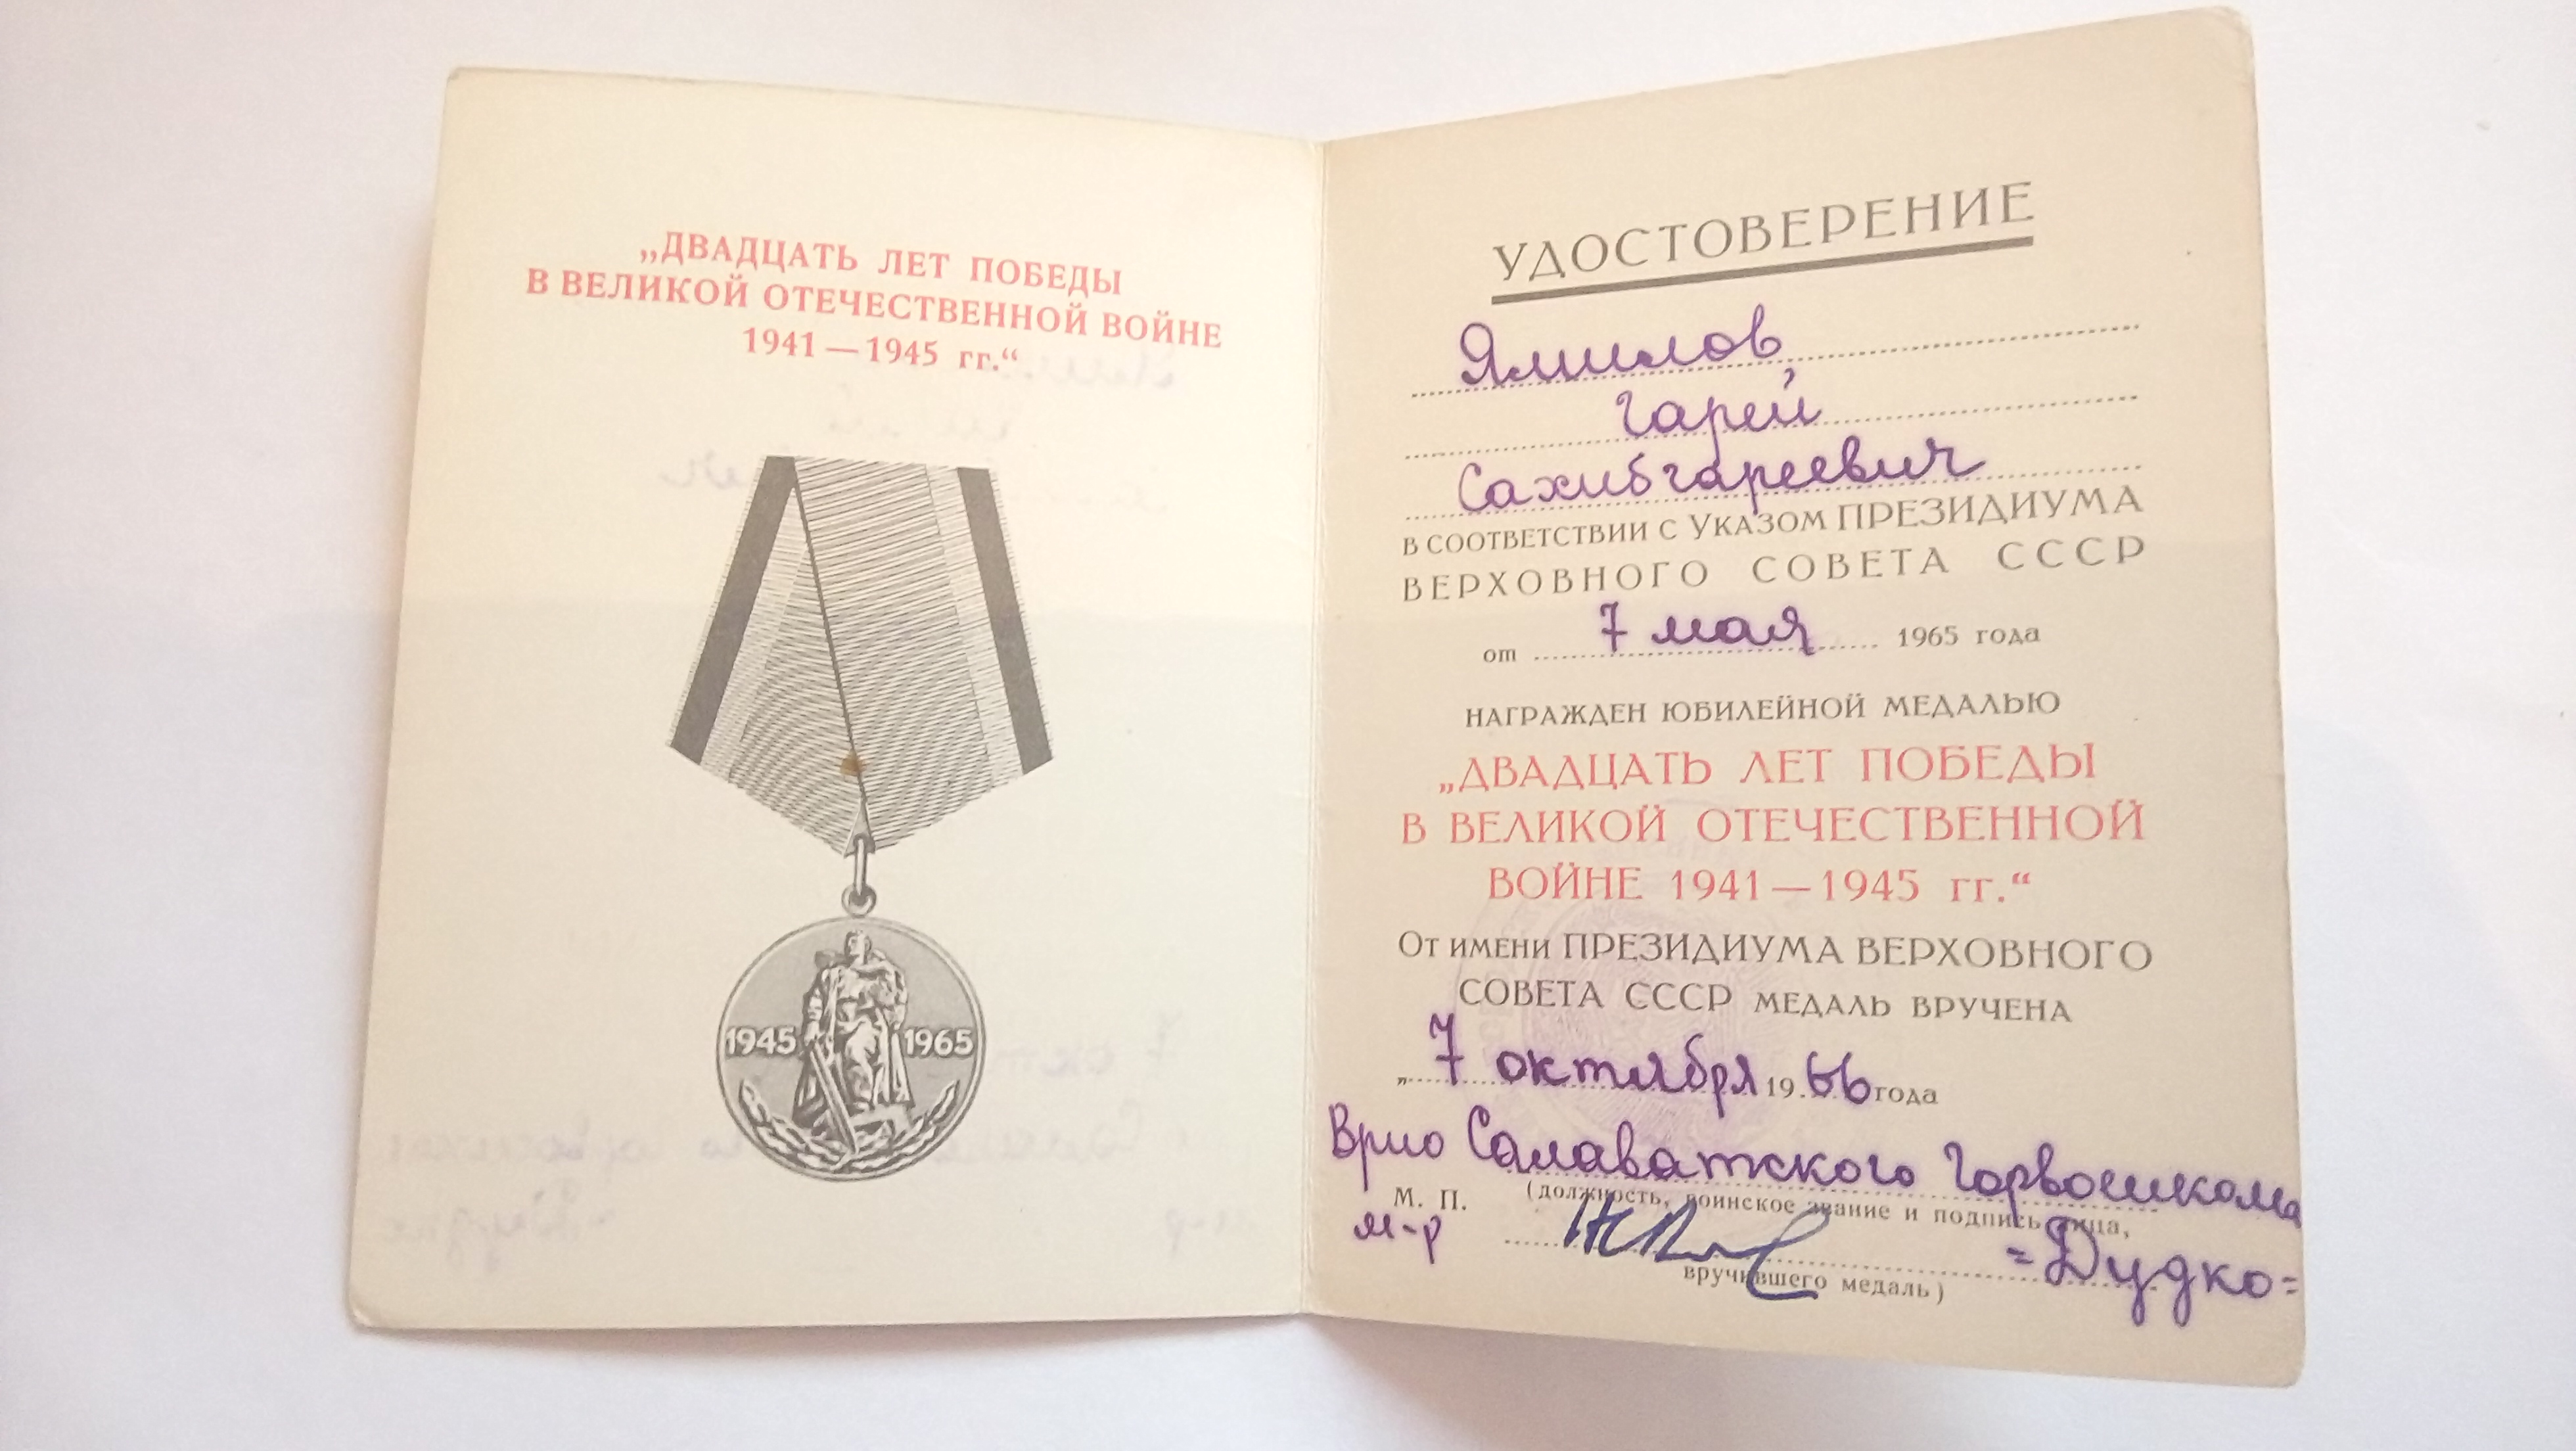 „ДВАДЦАТЬ ЛЕТ ПОБЕДЫ
В ВЕЛИКОЙ ОТЕЧЕСТВЕННОЙ ВОЙНЕ
1941 — 1945 гг.“
1945 1965
УДОСТОВЕРЕНИЕ
Ямилов
Гарей
Сахибгареевич
В СООТВЕТСТВИИ С УКАЗОМ ПРЕЗИДИУМА
ВЕРХОВНОГО СОВЕТА СССР
от 7 мая 1965 года
НАГРАЖДЕН ЮБИЛЕЙНОЙ МЕДАЛЬЮ
„ДВАДЦАТЬ ЛЕТ ПОБЕДЫ
В ВЕЛИКОЙ ОТЕЧЕСТВЕННОЙ
ВОЙНЕ 1941 — 1945 гг.“
ОТ ИМЕНИ ПРЕЗИДИУМА ВЕРХОВНОГО
СОВЕТА СССР МЕДАЛЬ ВРУЧЕНА
„7 октября 1966 года
Врио Салаватского Горвоенкома
М. П. (должность, воинское звание и подпись лица,
м-р =Дудко=
вручившего медаль)